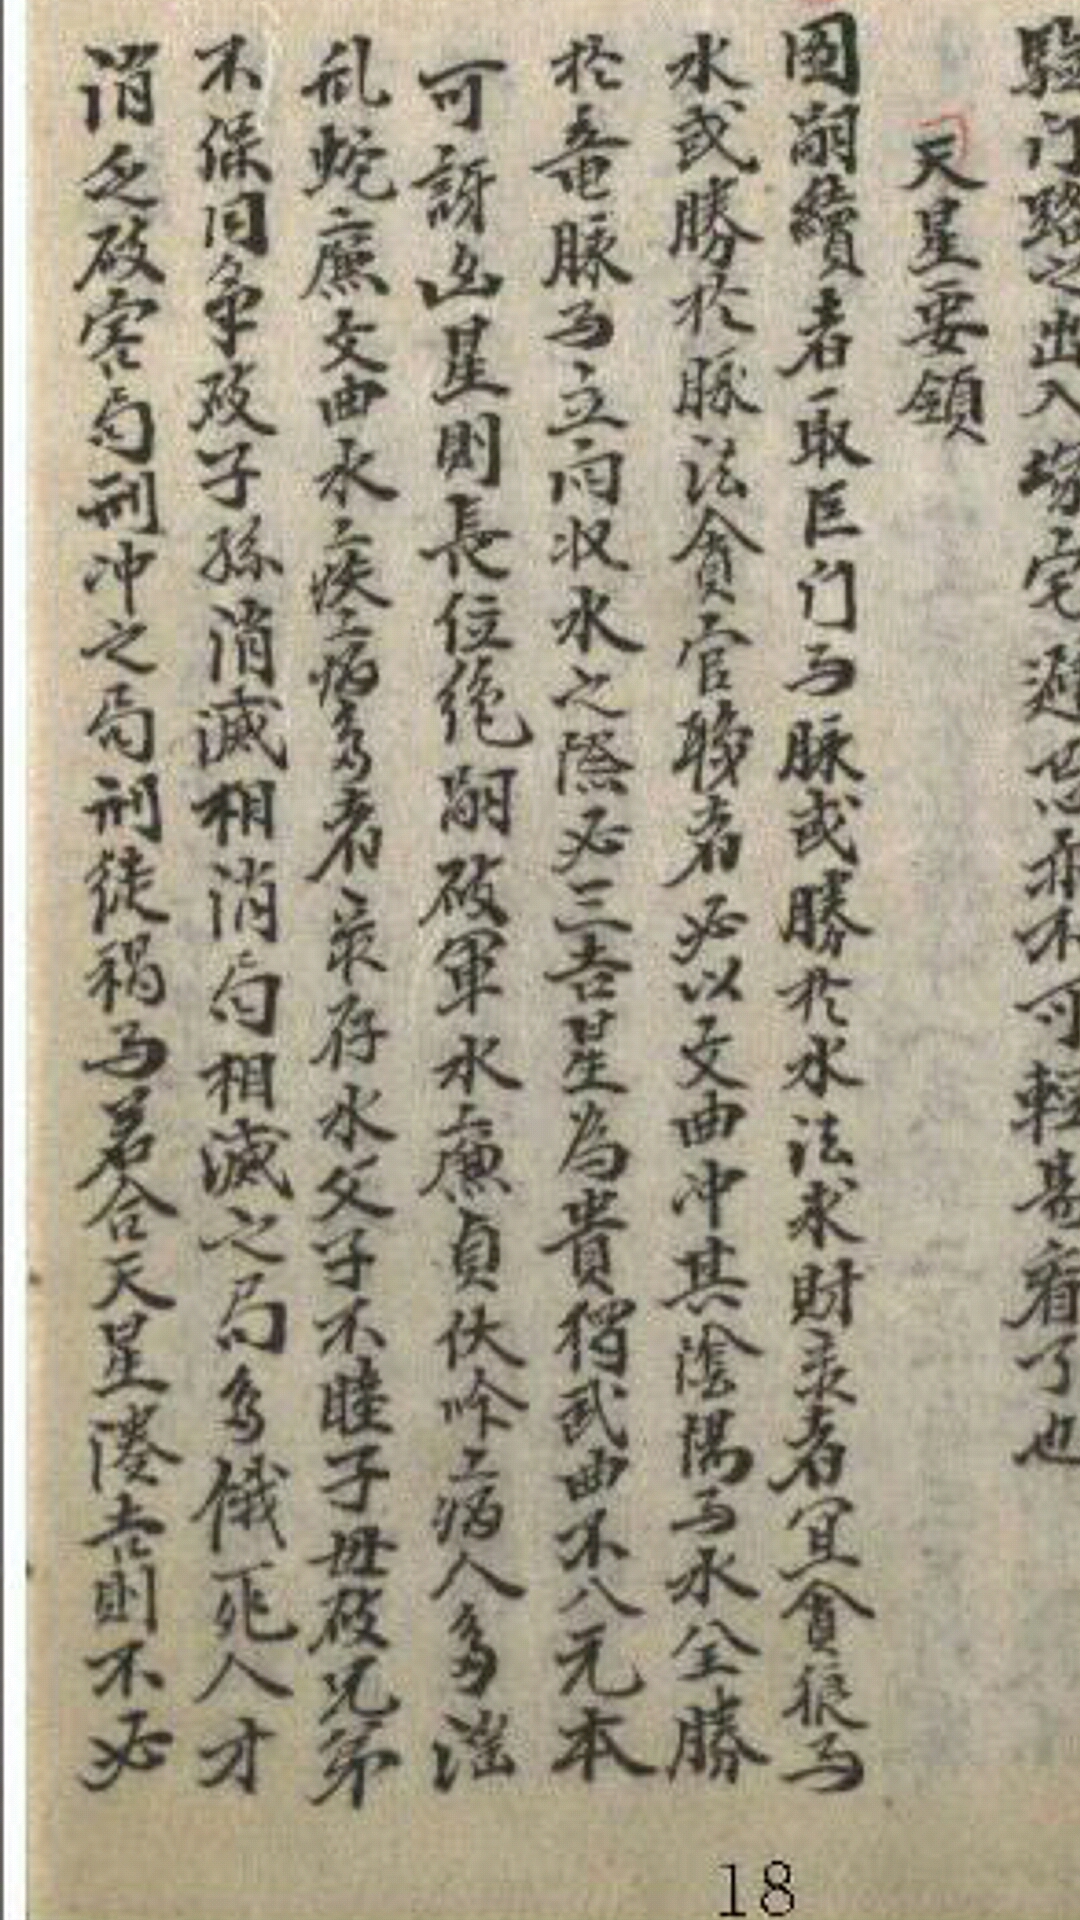 驗门路之出入塚宅避忌亦不可輕易看了也
天星要領
圖嗣續者取巨门与脉或勝於水法求財录者宜貪狼与
水或勝於脉法貪官職者必以文曲冲其陰陽与水全勝
於竜脉与立向収水之際必三吉星為貴得武曲不入元本
可訝凶星則長位绝嗣破軍水廉貞伏吟病人多淫
乱蛇廉文曲水疾病多者录存水父子不睦子母破兄弟
不保同争歿子孫消滅相消局相滅之局多餓死人才
消之破害局刑冲之局刑徒禍与若合天星湊吉則不必
18